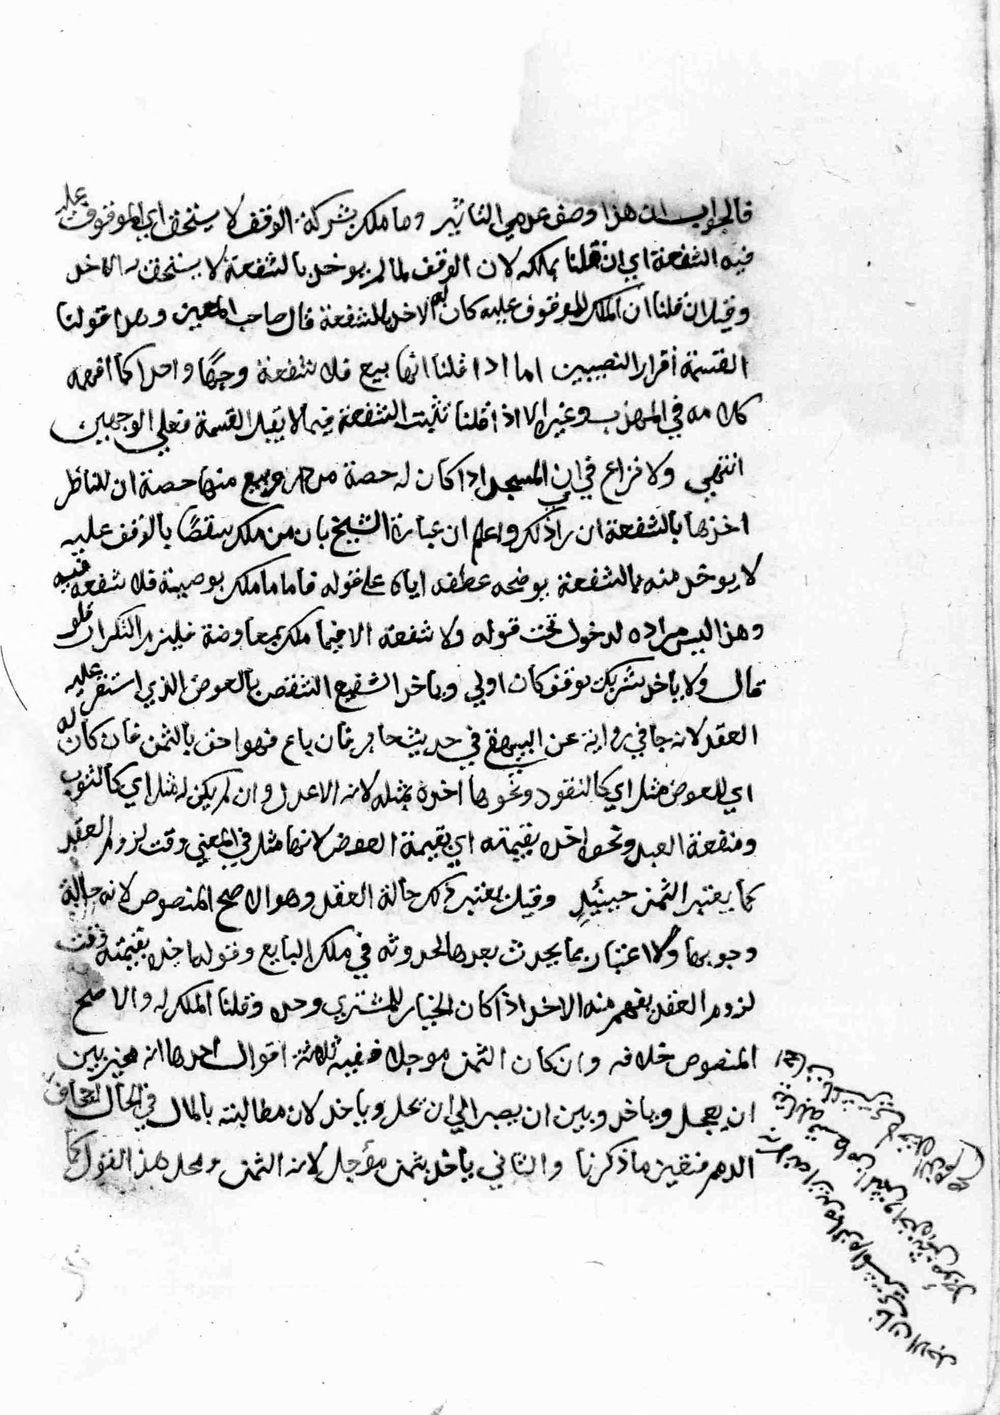 فالجواب ان هذا وصف عدمي التاثير وما ملك بشركة الوقف لا يستحق اي الموقوف عليه
فيه الشفعة اي ان قلنا يملكه لان الوقف لما لم يوخذ بالشفعة لا يستحق به الاخذ
وقيل ان قلنا ان الملك للموقوف عليه كان له الاخذ بالشفعة قال صاحب المعين وهذا قولنا
القسمة افراز النصيبين اما اذا قلنا انها بيع فلا شفعة وجهًا واحدا كما افهمه
كلامه في المهذب وغيره الا اذا قلنا تثبت الشفعة فيما لا يقبل القسمة فعلى الوجهين
انتهى ولا نزاع في ان المسجد اذا كان له حصة من دار وبيع منها حصة ان للناظر
اخذها بالشفعة ان راى ذلك واعلم ان عبارة الشيخ بان من ملك شقصًا بالوقف عليه
لا يوخذ منه بالشفعة يوضحه عطفه اياه على قوله فاما ما ملك بوصية فلا شفعة فيه
وهذا ليس مراده لدخوله تحت قوله ولا شفعة الا فيما ملك بمعاوضة فيلزم التكرار فلو
قال ولا ياخذ شريك بوقف كان اولى وياخذ الشفيع الشقص بالعوض الذي استقر عليه
العقد لانه جا في رواية عن البيهقي في حديث جابر فان باع فهو احق بالثمن فان كان له
اي للعوض مثل اي كالنقود ونحوها اخذه بمثله لانه الاعدل وان لم يكن له مثل اي كالثوب
ومنفعة العبد ونحوه اخذه بقيمته اي بقيمة العوض لانها مثل في المعنى وقت لزوم العقد
كما يعتبر الثمن حينئذٍ وقيل يعتبر ذلك حالة العقد وهو الاصح المنصوص لانه حالة
وجوبها ولا اعتبار بما يحدث بعدها لحدوثه في ملك البايع وقوله اخذه بقيمته وقت
لزوم العقد يفهم منه الاخذ اذا كان الخيار للمشتري وحده وقلنا الملك له والاصح
المنصوص خلافه وان كان الثمن موجلا ففيه ثلاثة اقوال احدها انه مخير بين
ان يعجل وياخذ وبين ان يصبر الى ان يحل وياخذ لان مطالبته بالمال في الحال
فتعين ما ذكرنا والثاني ياخذ بثمن مؤجل لانه الثمن ومحل هذا القول كما